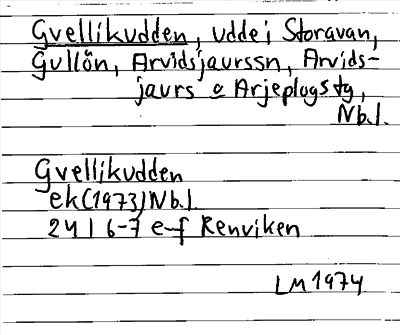 Gvellikudden, udde i Storavan,
Gullön, Arvidsjaurssn, Arvids-
jaurs o Arjeplogs tg,
Nb.l.
Gvellikudden
ek(1973)Nb.l.
24 I 6-7 e-f Renviken
LM 1974